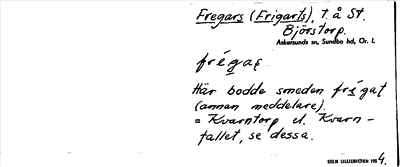 Fregars (Frigarts), t. å St.
Björstorp.
Askersunds sn, Sundbo hd, Ör. l.
frégas
Här bodde smeden frégat
(annan meddelare).
= Kvarntorp el. Kvarn-
fallet, se dessa.
STEN LILLIEBJÖRN 1954.